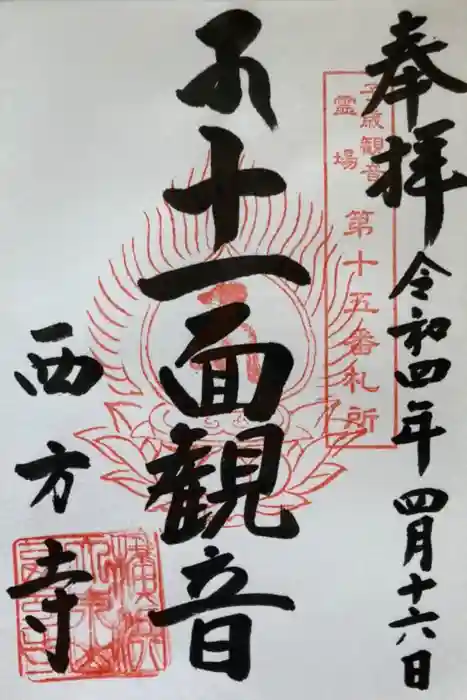 奉拝
令和四年四月十六日
子歳観音
霊場
第十五番札所
十一面観音
西方寺